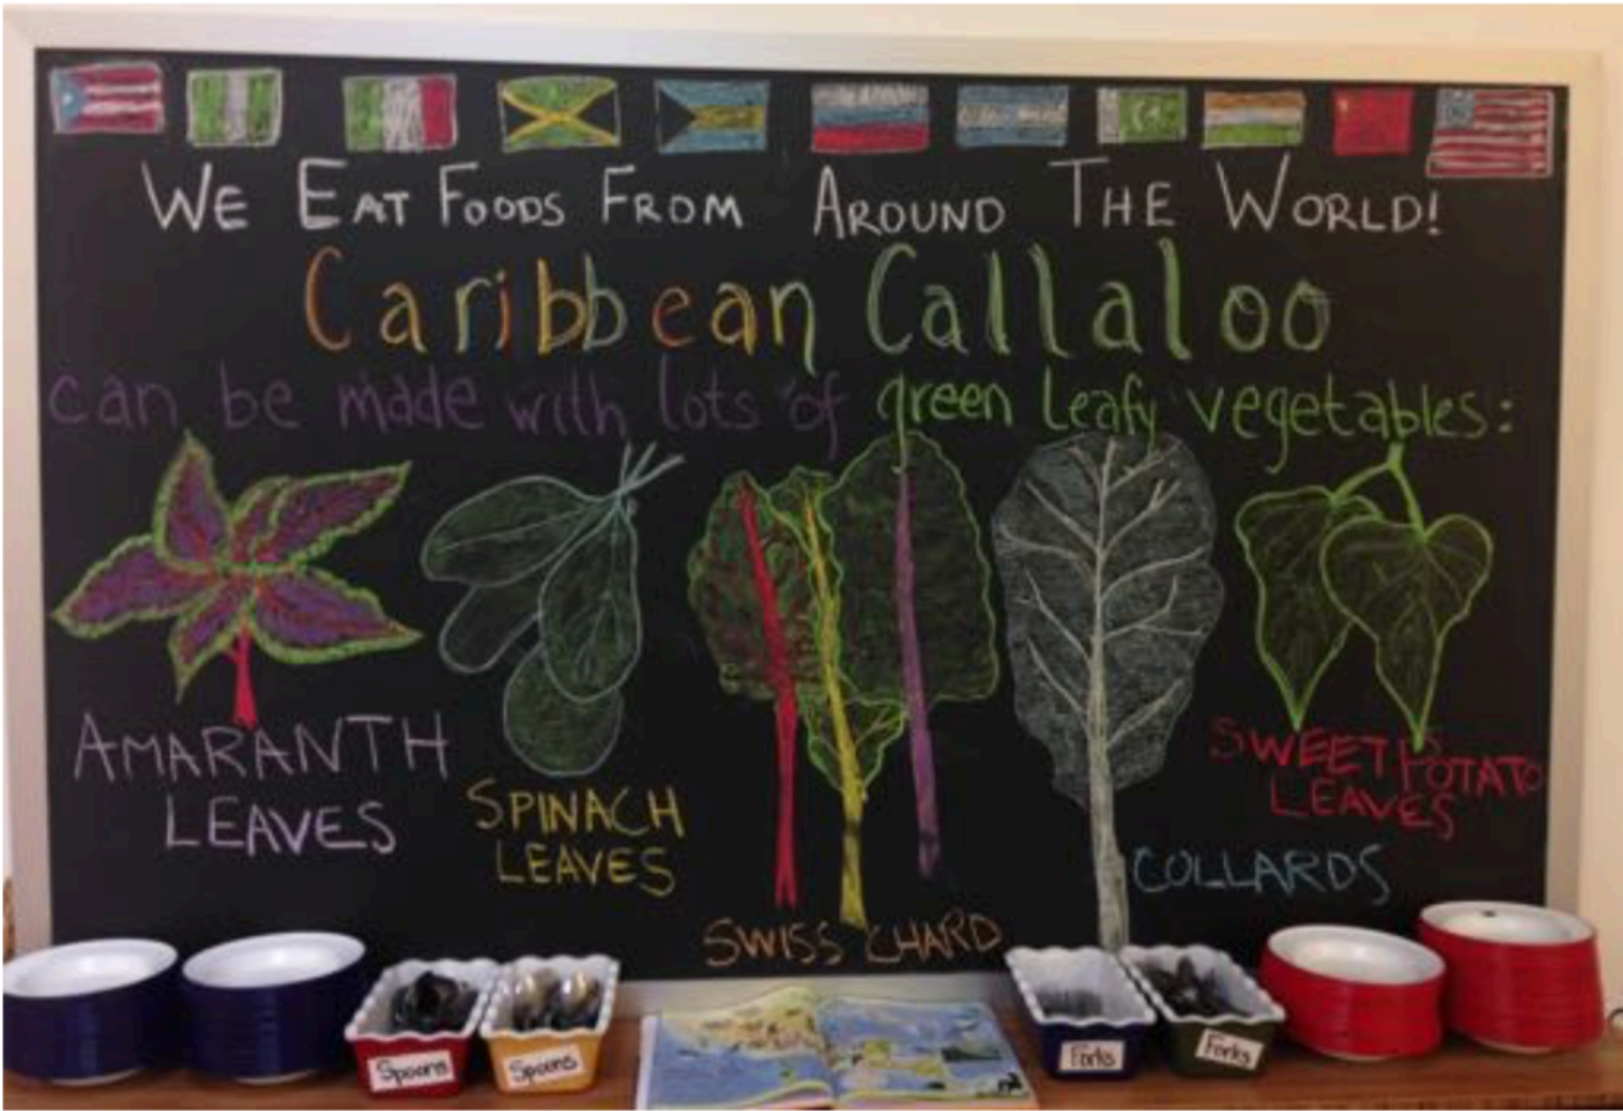 WE EAT FOODS FROM AROUND THE WORLD!
Caribbean Callaloo
can be made with lots of green leafy vegetables:
AMARANTH
LEAVES
SPINACH
LEAVES
SWISS CHARD
COLLARDS
SWEET POTATO
LEAVES
Spoons
Spoons
Forks
Forks